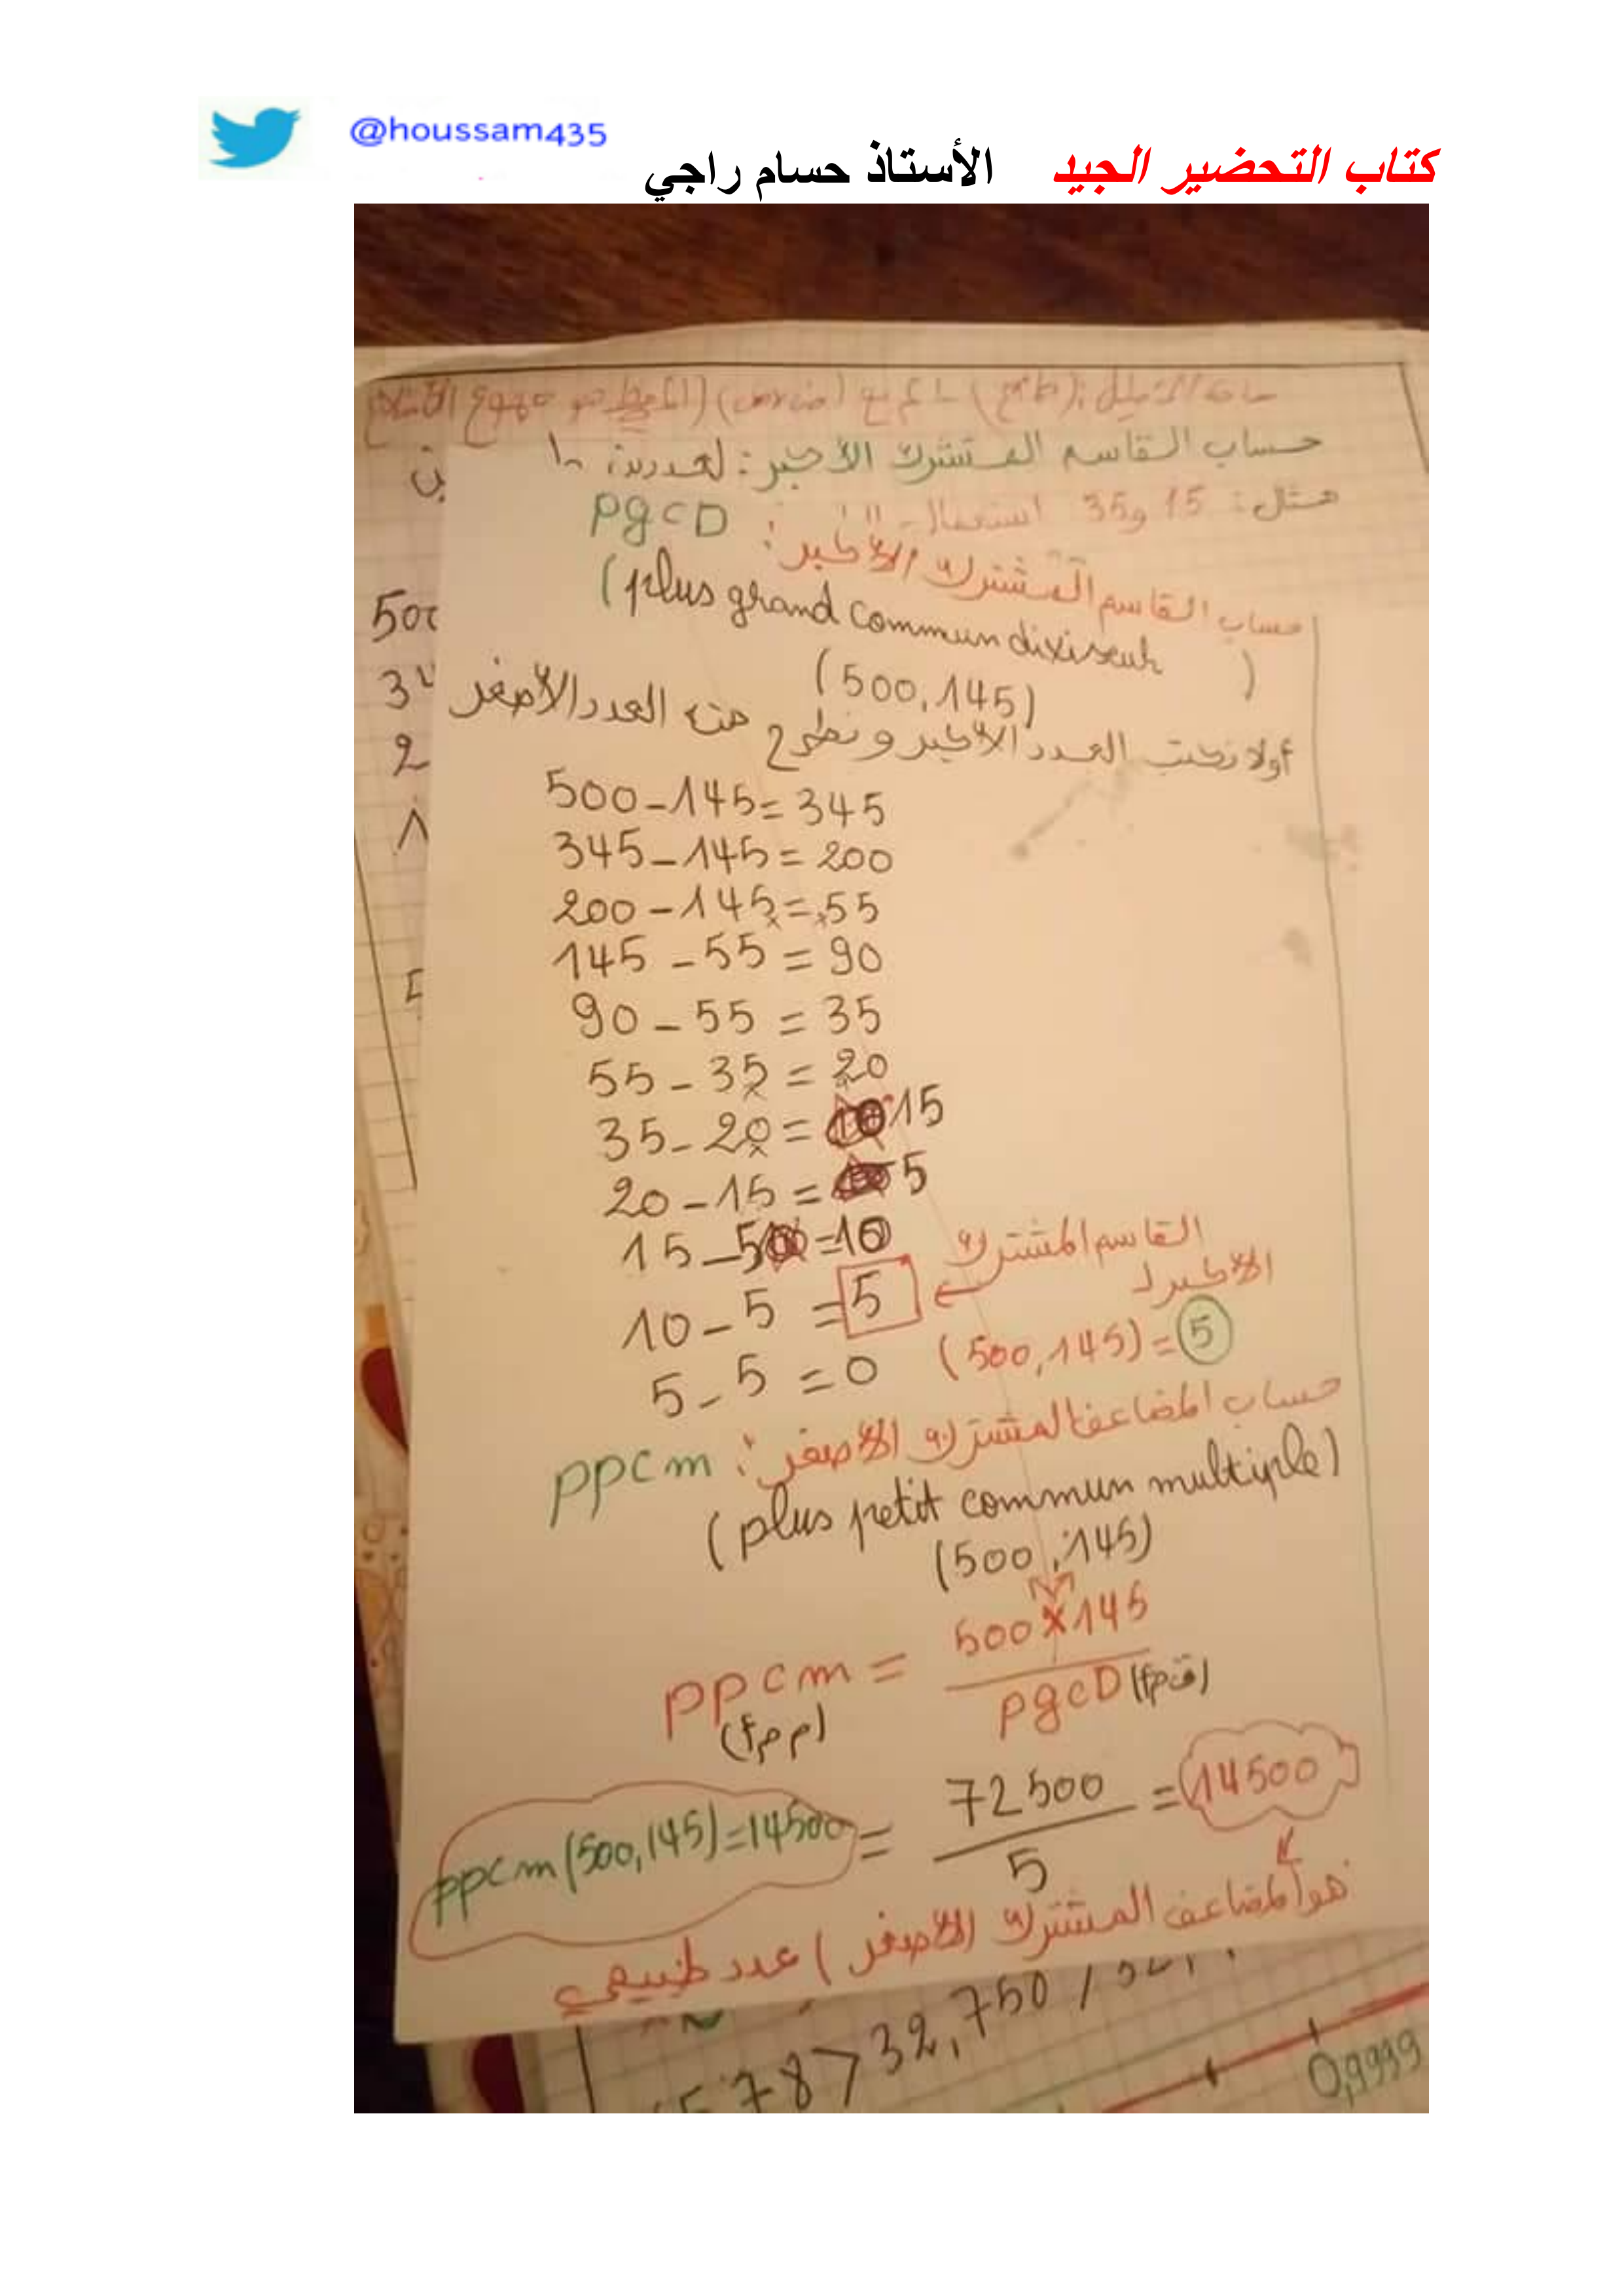 @houssam435
كتاب التحضير الجيد الأستاذ حسام راجي
حساب القاسم المشترك الأكبر: لعددين
مثل: 15 و 35 استعمال
حساب القاسم المشترك الأكبر: pgcD
(plus grand commun diviseur)
(500,145)
أولا نكتب العدد الأكبر و نطرح منه العدد الأصغر
500
34
2
1
500-145=345
345-145=200
200-145=55
145-55=90
90-55=35
55-35=20
35-20=15
20-15=5
15-5=10
10-5=5
القاسم المشترك
الأكبر لـ
(500,145)=5
5-5=0
حساب المضاعف المشترك الأصغر: ppcm
(plus petit commun multiple)
(500,145)
ppcm = 500×145
(م م أ)
pgcD (ق م أ)
ppcm(500,145)=14500 = 72500 = 14500
5
هو المضاعف المشترك الأصغر) عدد طبيعي
578>32,750/
0,9999